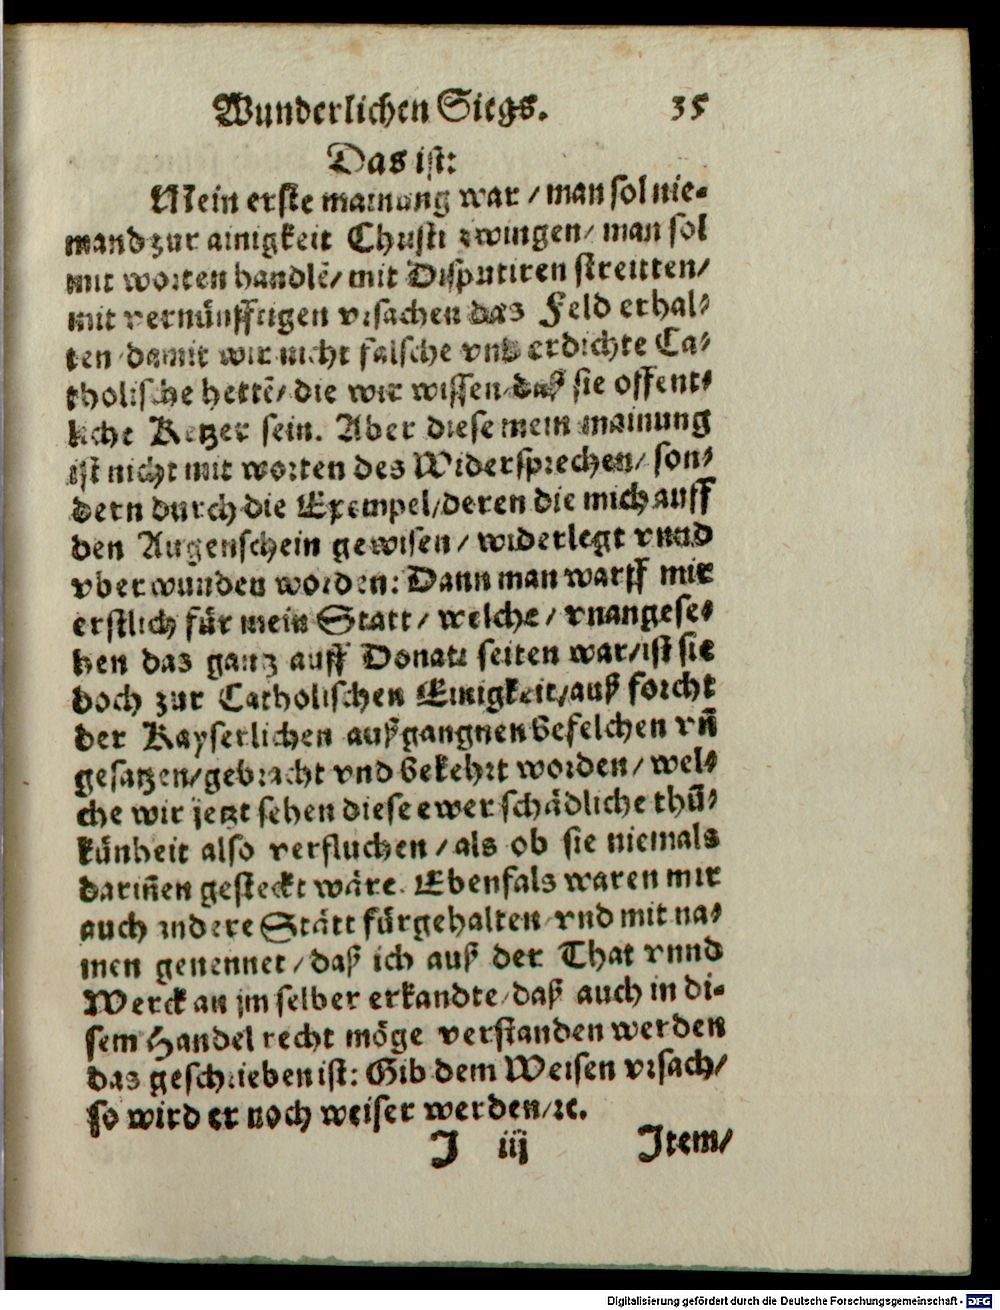 Wunderlichen Siegs. 35
Das ist:
Mein erste mainung war / man sol nie-
mand zur ainigkeit Christi zwingen / man sol
mit worten handlẽ / mit Disputiren streitten /
mit vernünfftigen vrsachen das Feld erhal-
ten / damit wir nicht falsche vnd erdichte Ca-
tholische hettẽ / die wir wissen daß sie offent-
liche Ketzer sein. Aber diese mein mainung
ist nicht mit worten des Widersprechen / son-
dern durch die Exempel / deren die mich auff
den Augenschein gewisen / widerlegt vnnd
vberwunden worden: Dann man warff mir
erstlich für mein Statt / welche / vnangese-
hen das gantz auff Donati seiten war / ist sie
doch zur Catholischen Einigkeit / auß forcht
der Kayserlichen außgangnen befelchen vñ
gesatzen / gebracht vnd bekehrt worden / wel-
che wir jetzt sehen diese ewer schädliche thũ-
künheit also verfluchen / als ob sie niemals
dariñen gesteckt wäre. Ebenfals waren mir
auch andere Stätt fürgehalten vnd mit na-
men genennet / daß ich auß der That vnnd
Werck an jm selber erkandte / daß auch in di-
sem Handel recht möge verstanden werden
das geschrieben ist: Gib dem Weisen vrsach /
so wird er noch weiser werden / ꝛc.
J iij Item /
Digitalisierung gefördert durch die Deutsche Forschungsgemeinschaft - DFG